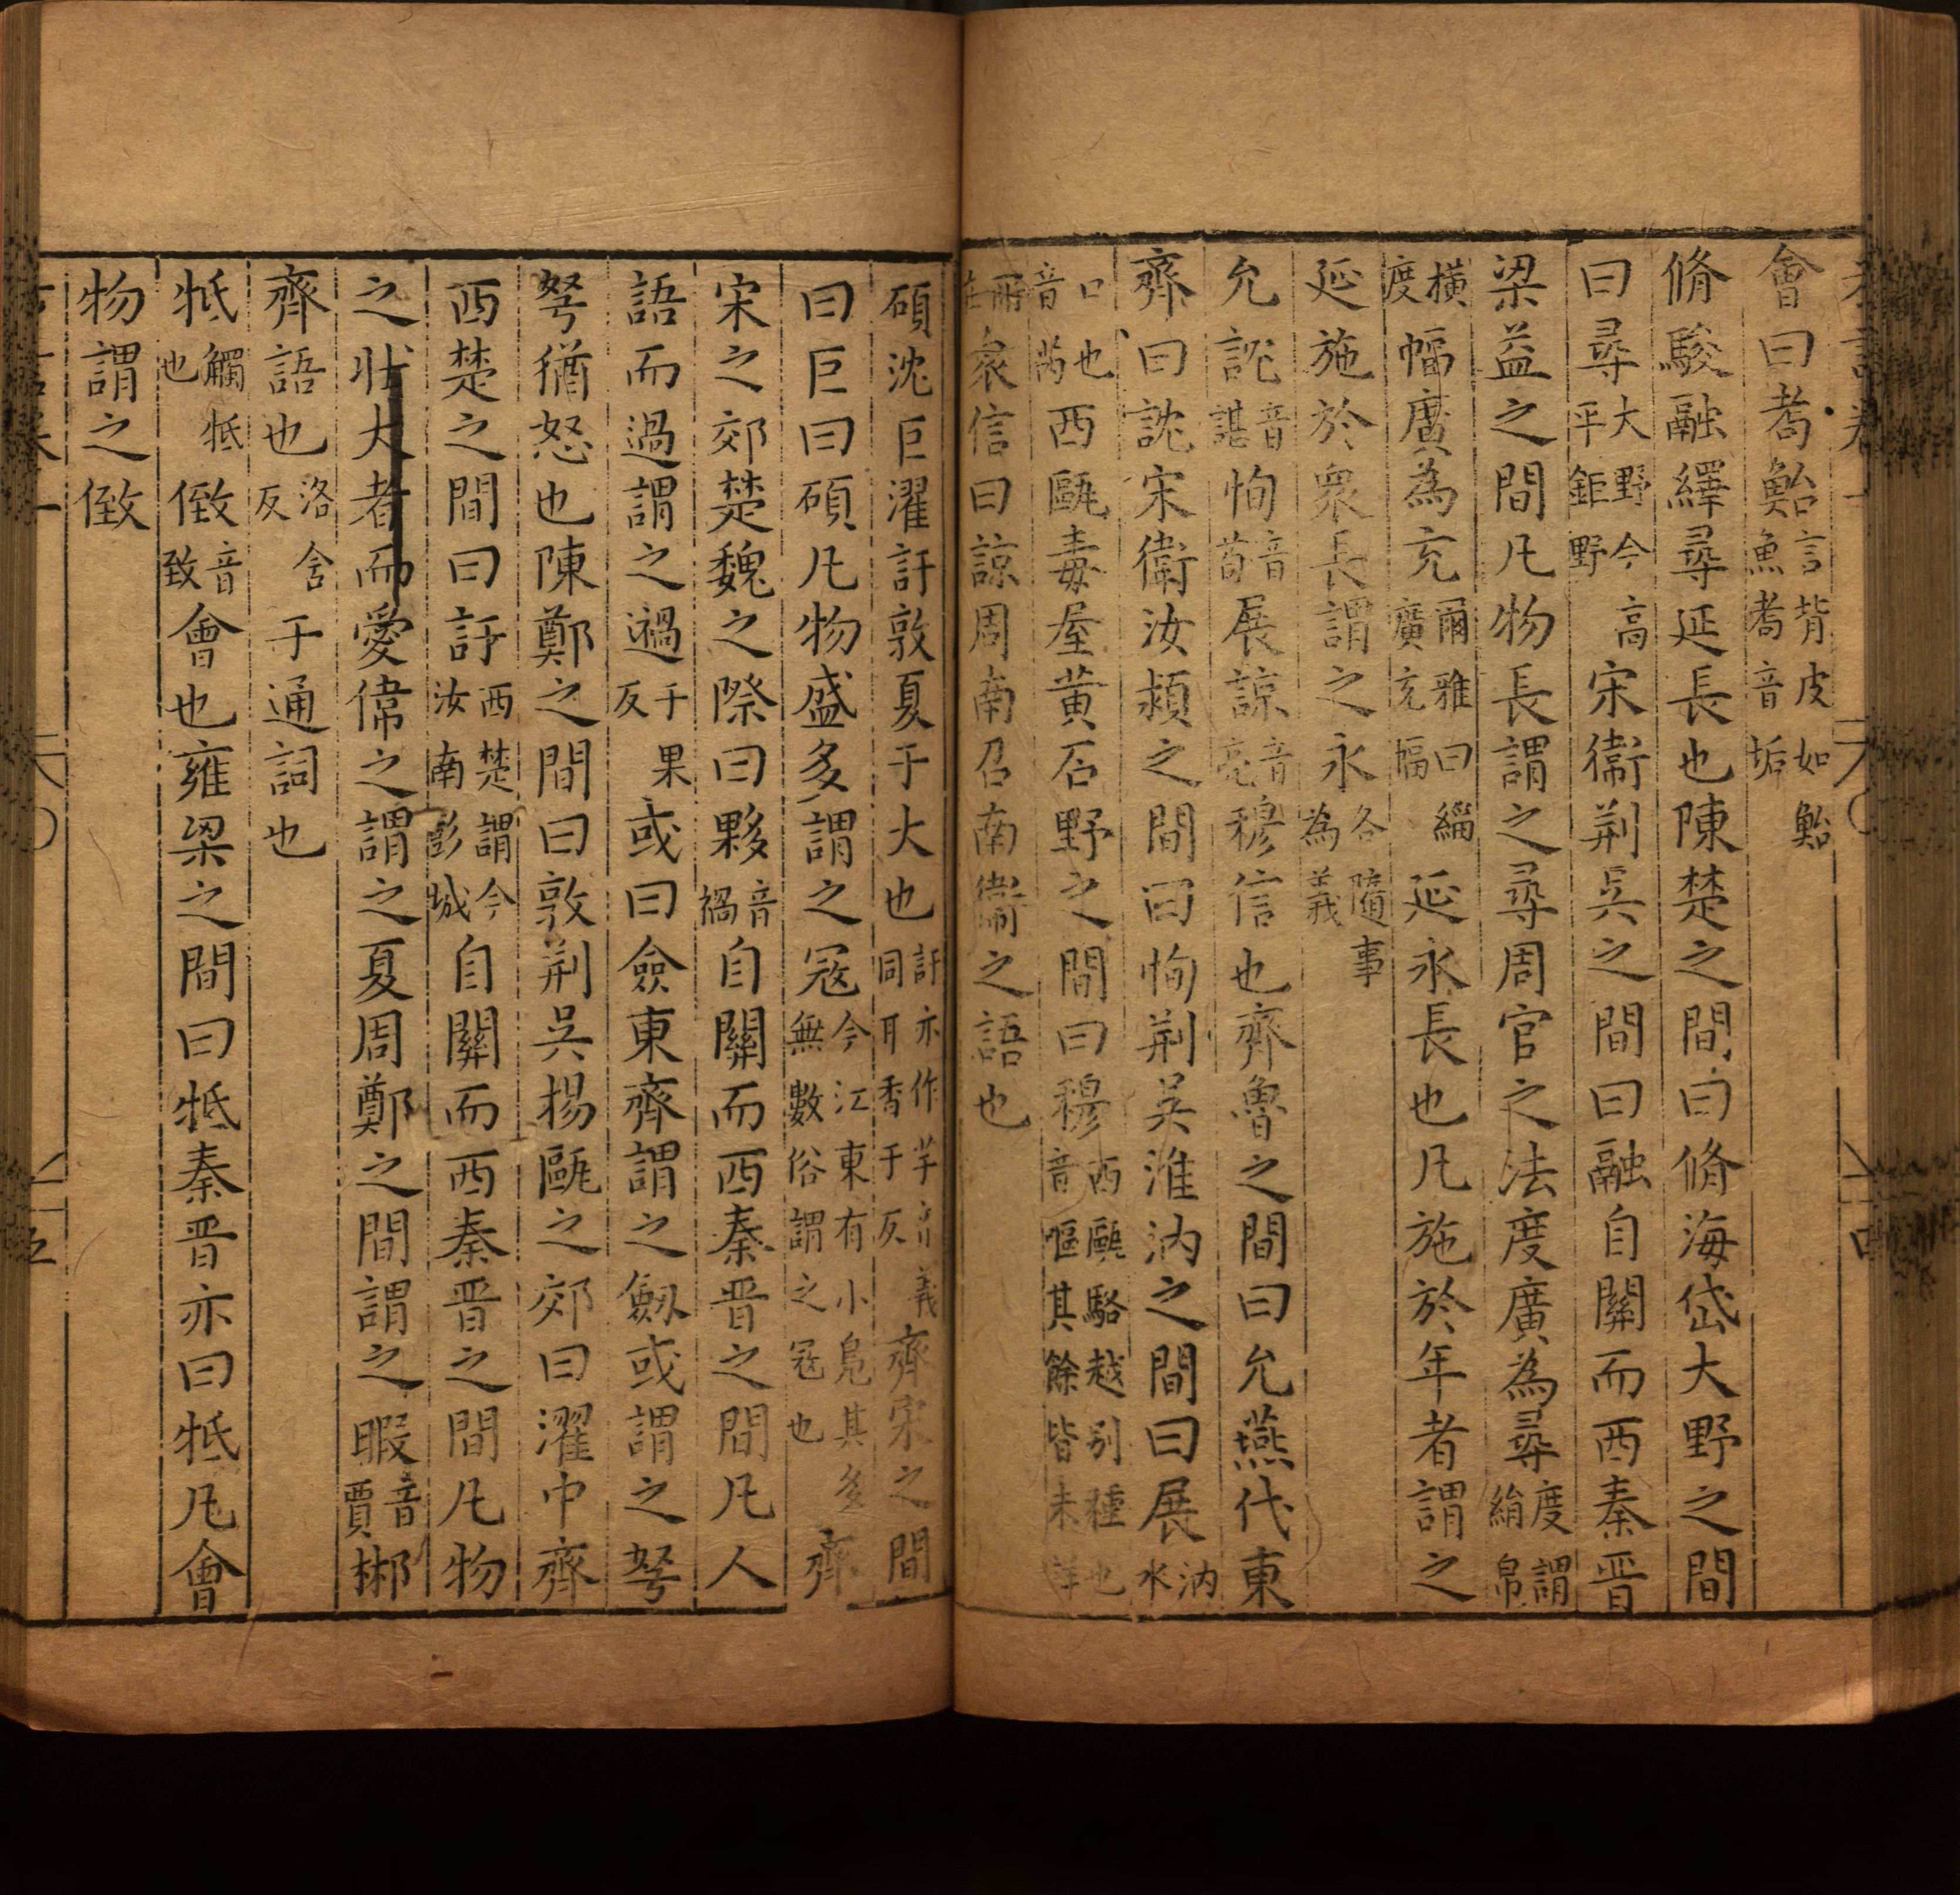 會曰耇鮐言背皮如鮐魚耇音垢
脩駿融繹尋延長也陳楚之間曰脩海岱大野之間
曰尋大野今高平鉅野宋衛荆吳之間曰融自關而西秦晉
梁益之間凡物長謂之尋周官之法度廣為尋度謂絹帛
橫度幅廣為充爾雅曰緇廣充幅延永長也凡施於年者謂之
延施於衆長謂之永各隨事為義
允訦音諶恂音荀展諒音亮穆信也齊魯之間曰允燕代東
齊曰訦宋衛汝潁之間曰恂荆吳淮汭之間曰展汭水
口也音芮西甌毒屋黃石野之間曰穆西甌駱越別種也音嘔其餘皆未詳
衆信曰諒周南召南衛之語也
碩沈巨濯訏敦夏于大也訏亦作芋音義同耳香于反齊宋之間
曰巨曰碩凡物盛多謂之寇今江東有小鳧其多無數俗謂之寇也齊
宋之郊楚魏之際曰夥音禍自關而西秦晉之間凡人
語而過謂之𨓭于果反或曰僉東齊謂之劒或謂之弩
弩猶怒也陳鄭之間曰敦荆吳揚甌之郊曰濯中齊
西楚之間曰訏西楚謂今汝南彭城自關而西秦晉之間凡物
之壯大者而愛偉之謂之夏周鄭之間謂之暇音賈郴
齊語也洛含反于通詞也
牴觸牴也㑯音致會也雍梁之間曰牴秦晉亦曰牴凡會
物謂之㑯